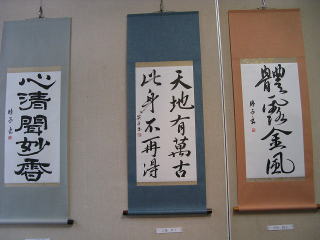 心清聞妙香
天地有萬古
此身不再得
體露金風